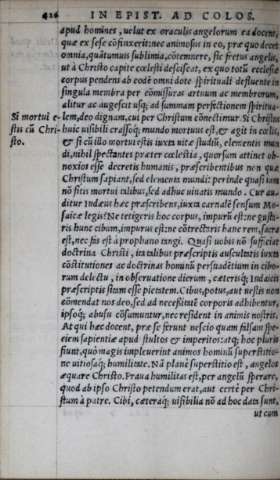 426 IN EPIST. AD COLOS.
apud homines, uelut ex oraculis angelorum ea docent,
quæ ex sese cōfinxerit: nec animosus in eo, præ quo decet
omnia, quātumuis sublimia, cōtemnere, sic fretus angelis,
ut à Christo capite cœlesti desciscat, ex quo totū ecclesiæ
corpus pendens ab eodē omni dote spirituali defluente in
singula membra per cōmissuras artuum ac membrorum,
alitur ac augescit usq; ad summam perfectionem spiritua-
Si mortui e- lem, deo dignam, cui per Christum cōnectimur. Si Christus
stis cū Chri- huic uisibili crassoq; mundo mortuus est, & agit in cœlis,
sto. & si cū illo mortui estis iuxta uitæ studiū, elementis mun
di, nihil spectantes præter cœlestia, quorsum attinet ob-
noxios esse decretis humanis, præscribentibus non quæ
Christum sapiant, sed elementa mundi: perinde quasi iam
nō sitis mortui talibus, sed adhuc uiuatis mundo. Cur au-
ditur Iudæus hæc præscribens, iuxta carnalē sensum Mo-
saicæ legis? Ne tetigeris hoc corpus, impurū est: ne gusta-
ris hunc cibum, impurus est: ne cōtrectaris hanc rem, sacra
est, nec fas est à prophano tangi. Quasi uobis nō sufficiat
doctrina Christi, ita talibus præscriptis auscultatis iuxta
cōstitutiones ac doctrinas hominū persuadētium in cibo-
rum delectu, in obseruatione dierum, cæterisq; Iudaicis
præscriptis sitam esse pietatem. Cibus, potus, aut uestis non
cōmendat nos deo, sed ad necessitatē corporis adhibentur,
ipsoq; abusu cōsumuntur, nec resident in animis nostris.
At qui hæc docent, præ se ferunt nescio quam falsam spe-
ciem sapientiæ apud stultos & imperitos: atq; hoc pluris
fiunt, quò magis impleuerint animos hominū superstitio-
ne uitiosaq; humilitate. Nā planè superstitio est, angelos
æquare Christo. Praua humilitas est, per angelū sperare,
quod ab ipso Christo petendum erat, aut certè per Chri-
stum à patre. Cibi, cæteraq; uisibilia nō ad hoc data sunt,
ut con